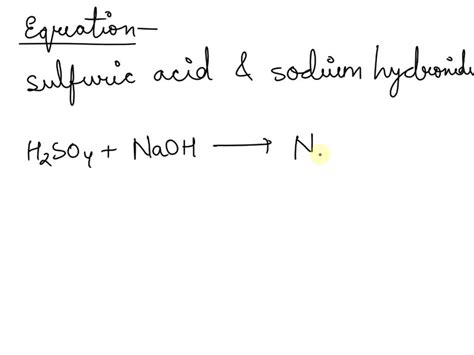 Equation—
sulfuric acid & sodium hydroxide
H₂SO₄ + NaOH ⟶ N